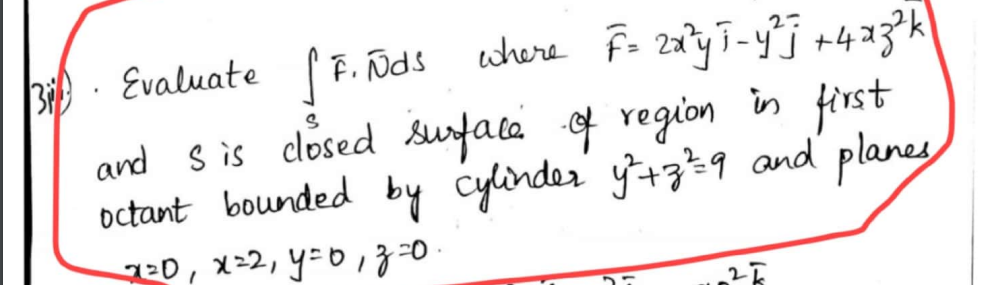 3iii) . Evaluate ∫_S F̄. N̄ds where F̄= 2x²y ī - y² j̄ + 4xz² k̄
and S is closed surface of region in first
octant bounded by cylinder y²+z²=9 and planes
x=0, x=2, y=0, z=0.
2 k̄